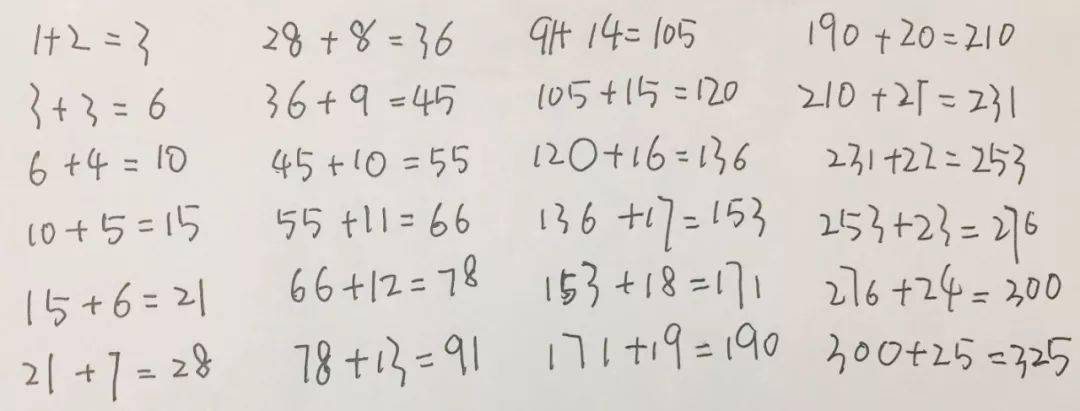 1+2=3
3+3=6
6+4=10
10+5=15
15+6=21
21+7=28
28+8=36
36+9=45
45+10=55
55+11=66
66+12=78
78+13=91
91+14=105
105+15=120
120+16=136
136+17=153
153+18=171
171+19=190
190+20=210
210+21=231
231+22=253
253+23=276
276+24=300
300+25=325